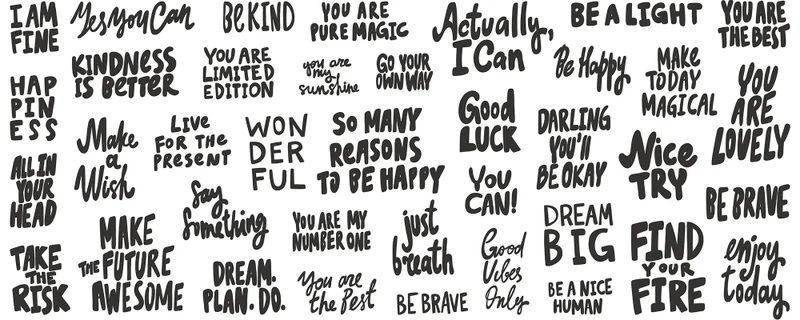 I AM
FINE
Yes You Can
BE KIND
YOU ARE
PURE MAGIC
Actually,
I Can
BE A LIGHT
YOU ARE
THE BEST
KINDNESS
IS BETTER
YOU ARE
LIMITED
EDITION
you are
my
sunshine
GO YOUR
OWN WAY
Be Happy
MAKE
TODAY
MAGICAL
YOU
ARE
LOVELY
HAP
PIN
ESS
Make
a
Wish
LIVE
FOR THE
PRESENT
WON
DER
FUL
SO MANY
REASONS
TO BE HAPPY
Good
LUCK
DARLING
YOU'll
BE OKAY
Nice
TRY
ALL IN
YOUR
HEAD
Say
Something
YOU
CAN!
BE BRAVE
TAKE
THE
RISK
MAKE
THE FUTURE
AWESOME
DREAM.
PLAN. DO.
YOU ARE MY
NUMBER ONE
You are
the Best
just
breath
BE BRAVE
Good
Vibes
Only
DREAM
BIG
BE A NICE
HUMAN
FIND
YOUR
FIRE
enjoy
today